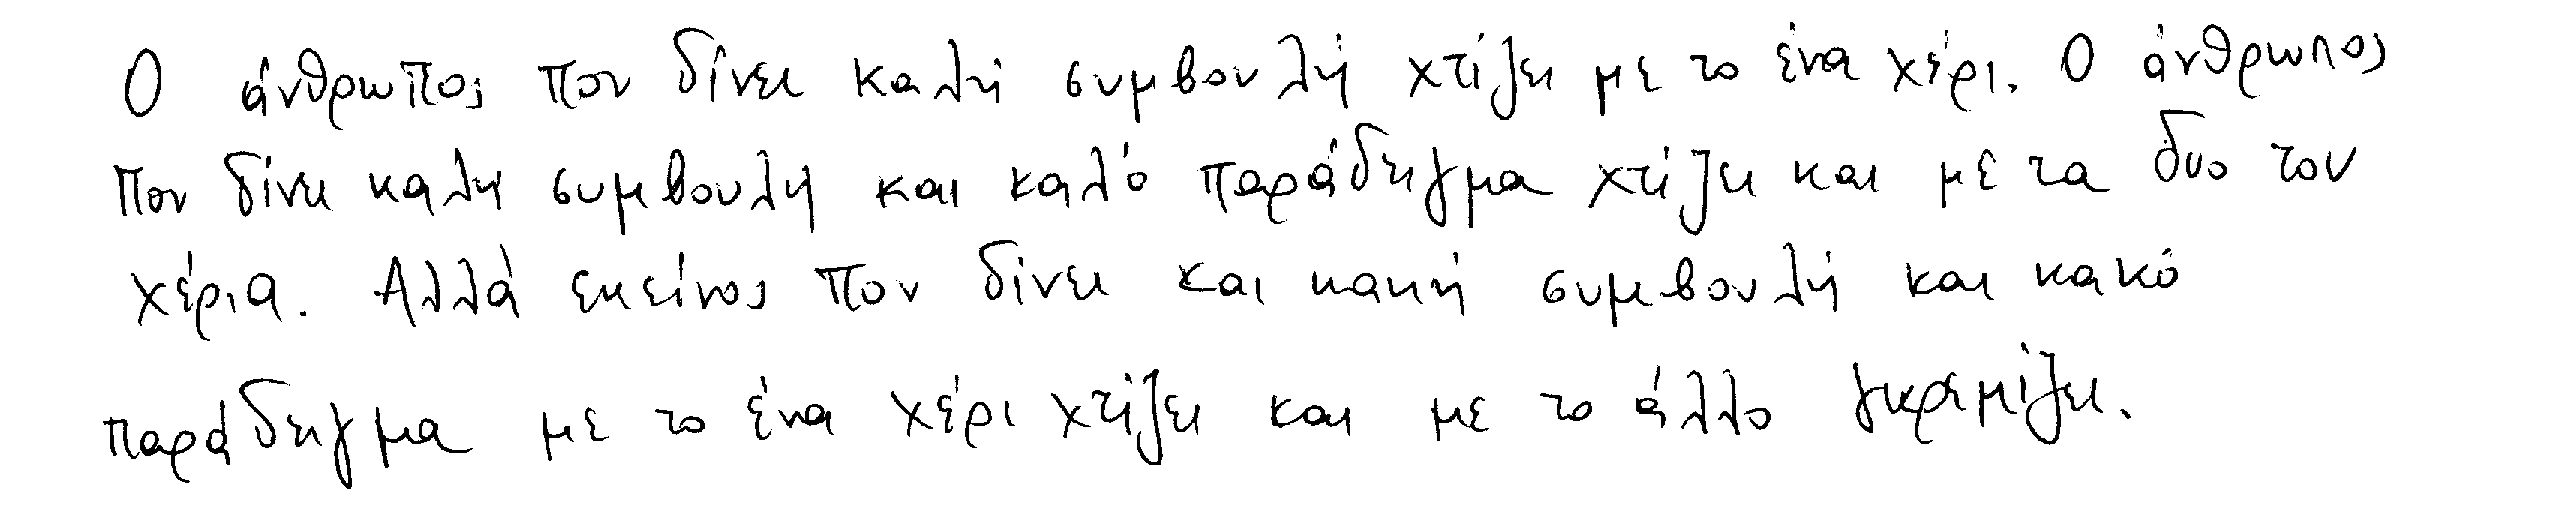 Ο άνθρωπος που δίνει καλή συμβουλή χτίζει με το ένα χέρι. Ο άνθρωπος
που δίνει καλή συμβουλή και καλό παράδειγμα χτίζει και με τα δυο του
χέρια. Αλλά εκείνος που δίνει και κακή συμβουλή και κακό
παράδειγμα με το ένα χέρι χτίζει και με το άλλο γκρεμίζει.